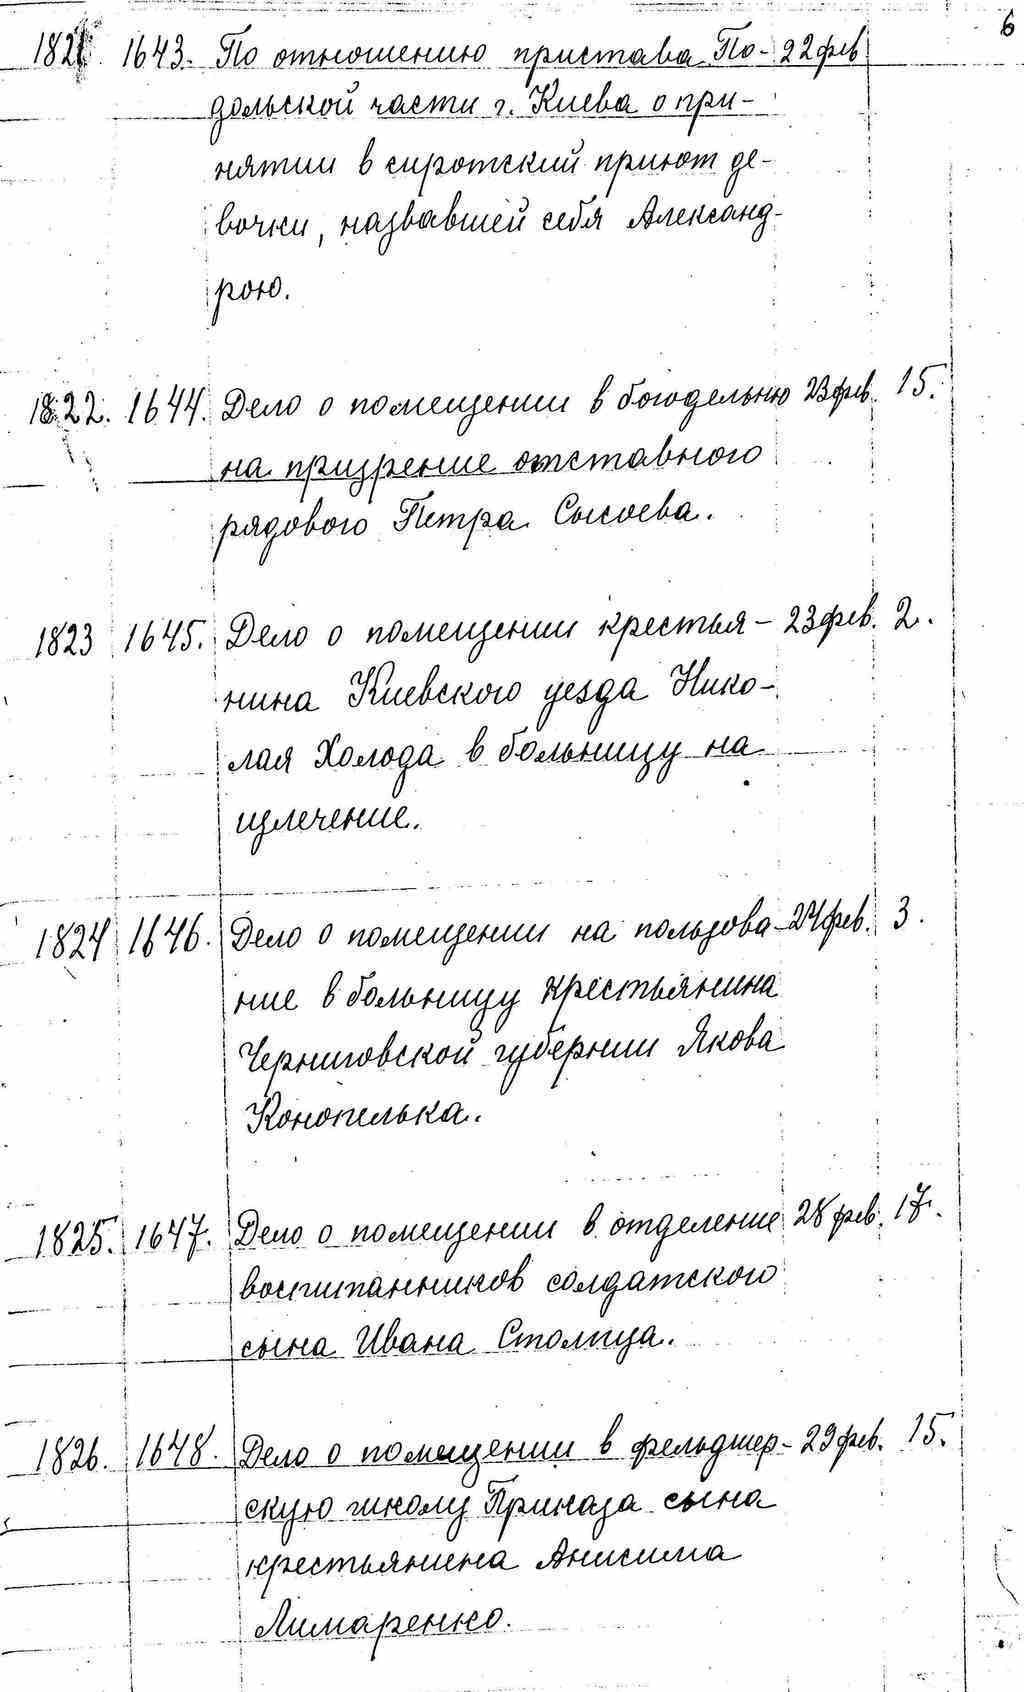 6
1821. 1643. По отношению пристава По- 22 фев
дольской части г. Киева о при-
нятии в сиротский приют де-
вочки, назвавшей себя Александ-
рою.
1822. 1644. Дело о помещении в богодельню 23 фев. 15.
на призрение отставного
рядового Петра Сысоева.
1823 1645. Дело о помещении крестья- 23 фев. 2.
нина Киевского уезда Нико-
лая Холода в больницу на
излечение.
1824 1646. Дело о помещении на пользова- 24 фев. 3.
ние в больницу крестьянина
Черниговской губернии Якова
Конопелька.
1825. 1647. Дело о помещении в отделение 28 фев. 17.
воспитанников солдатского
сына Ивана Столпца.
1826. 1648. Дело о помещении в фельдшер- 29 фев. 15.
скую школу Приказа сына
крестьянина Анисима
Лимаренко.